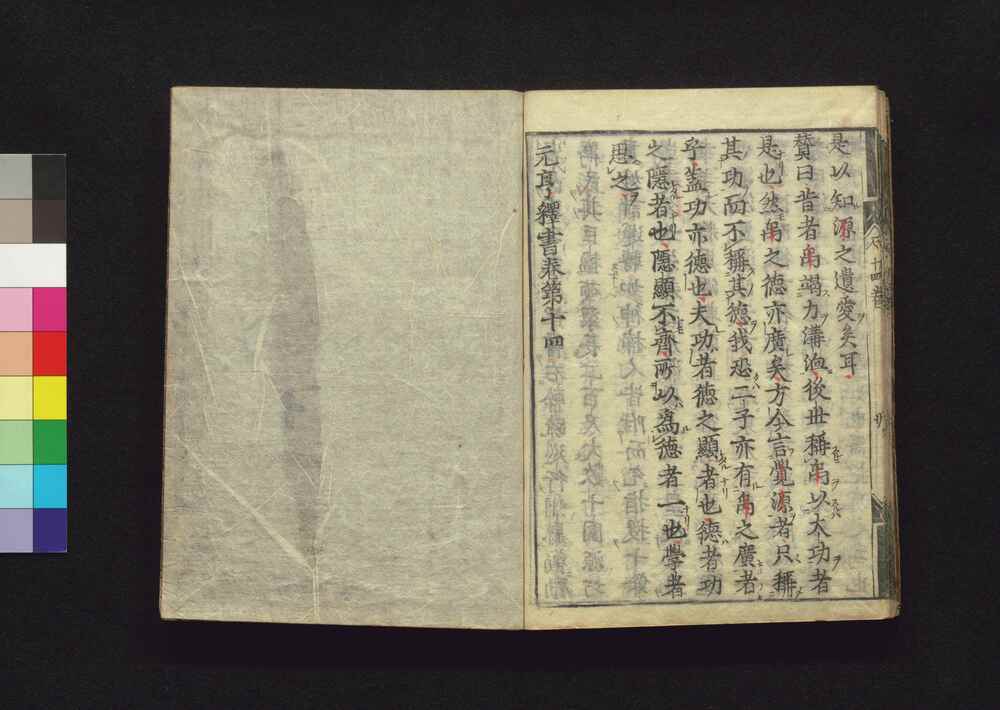 是以知源之遺愛矣耳
贊曰昔者禹竭力溝洫後世稱禹以大功者
是也然禹之德亦廣矣方今言覺源者只稱
其功而不稱其德我恐二子亦有禹之廣者
乎蓋功亦德也夫功者德之顯者也德者功
之隱者也隱顯不齊所以爲德者一也學者
思之
元亨釋書卷第十四